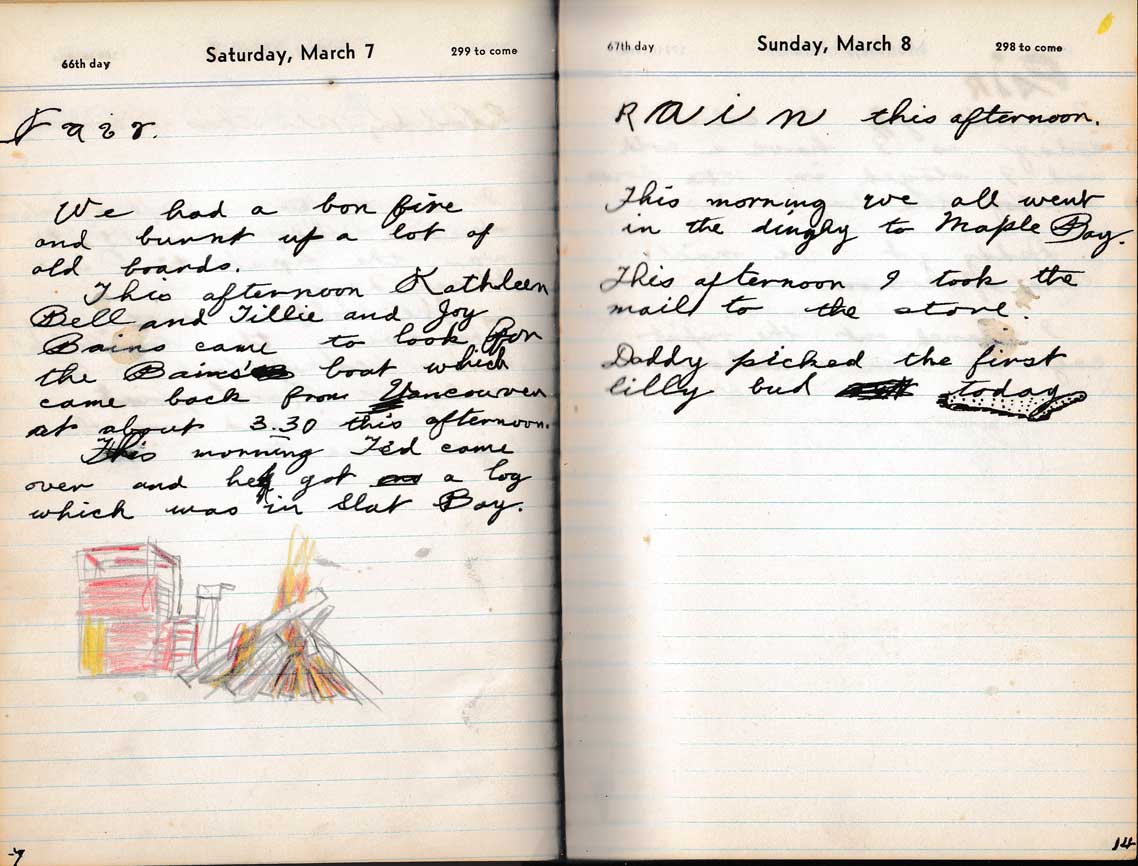 66th day Saturday, March 7 299 to come
Fair.
We had a bon fire
and burnt up a lot of
old boards.
This afternoon Kathleen
Bell and Tillie and Joy
Bains came to look for
the Bains' boat which
came back from Vancouver
at about 3.30 this afternoon.
This morning Ted came
over and he got a log
which was in Slat Bay.
67th day Sunday, March 8 298 to come
RAin this afternoon.
This morning we all went
in the dingly to Maple Bay.
This afternoon I took the
mail to the store.
Daddy picked the first
lilly bud today
14